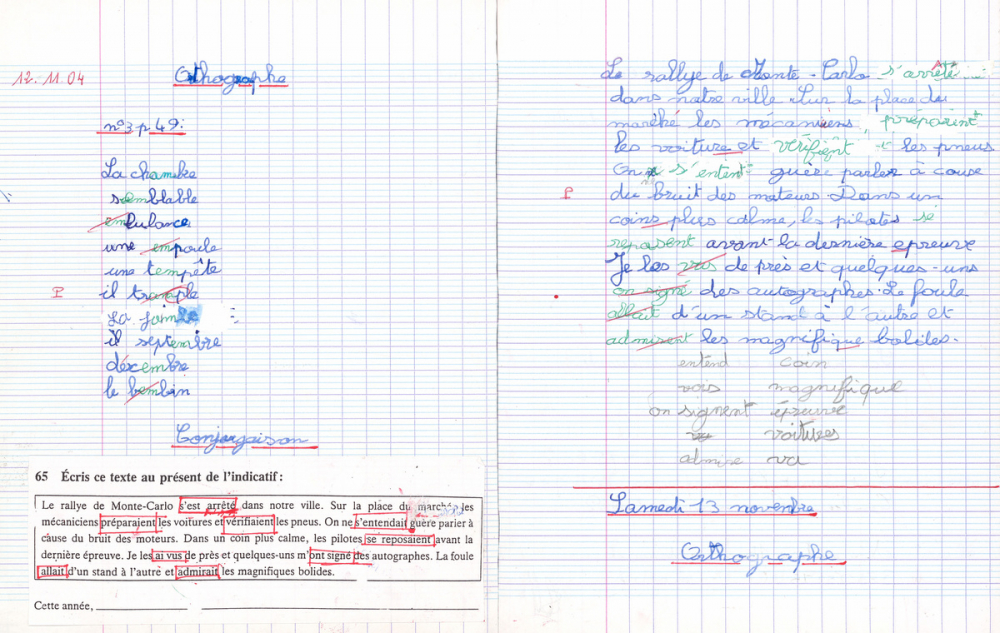 12.11.04
Orthographe
n°3 p 49:
La chambre
semblable
embulance
une empoule
une tempête
P
il trample
La jambe
il septembre
décembre
le bembin
Conjurgaison
65 Écris ce texte au présent de l'indicatif :
Le rallye de Monte-Carlo s'est arrêté dans notre ville. Sur la place du marché, les
mécaniciens préparaient les voitures et vérifiaient les pneus. On ne s'entendait guère parler à
cause du bruit des moteurs. Dans un coin plus calme, les pilotes se reposaient avant la
dernière épreuve. Je les ai vus de près et quelques-uns m'ont signé des autographes. La foule
allait d'un stand à l'autre et admirait les magnifiques bolides.
Cette année,
Le rallye de Monte-Carlo s'arrête
dans notre ville Sur la place du
marché les mécaniens préparint
les voiture et vérifient les pneus
On s'entent guère parler à cause
P
du bruit des moteurs Dans un
coins plus calme, les pilotes se
reposent avant la dernière epreuve
Je les vus de près et quelques-uns
on signé des autographes. Le foule
allait d'un stand à l'autre et
admirent les magnifique bolides.
entend coin
vois magnifique
on signent épreuve
voitures
admire va
Samedi 13 novembre
Orthographe